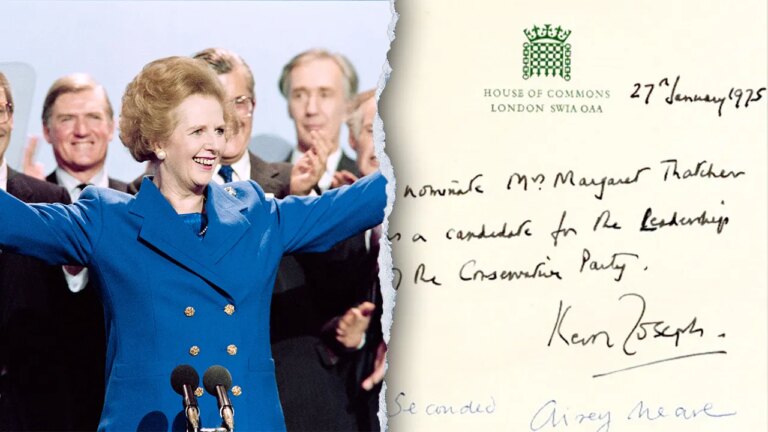 HOUSE OF COMMONS
LONDON SW1A 0AA
27th January 1975
nominate Mrs Margaret Thatcher
s a candidate for the Leadership
of the Conservative Party.
Keith Joseph
Seconded Airey Neave